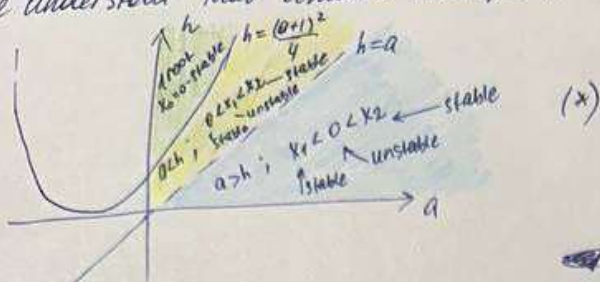 understand that
h
h = (a+1)²/4
h=a
1 root
x₀=0-stable
0<x₁<x₂ — stable
stable unstable
a<h ;
a>h ; x₁ < 0 < x₂ ← stable
unstable
stable
(*)
a